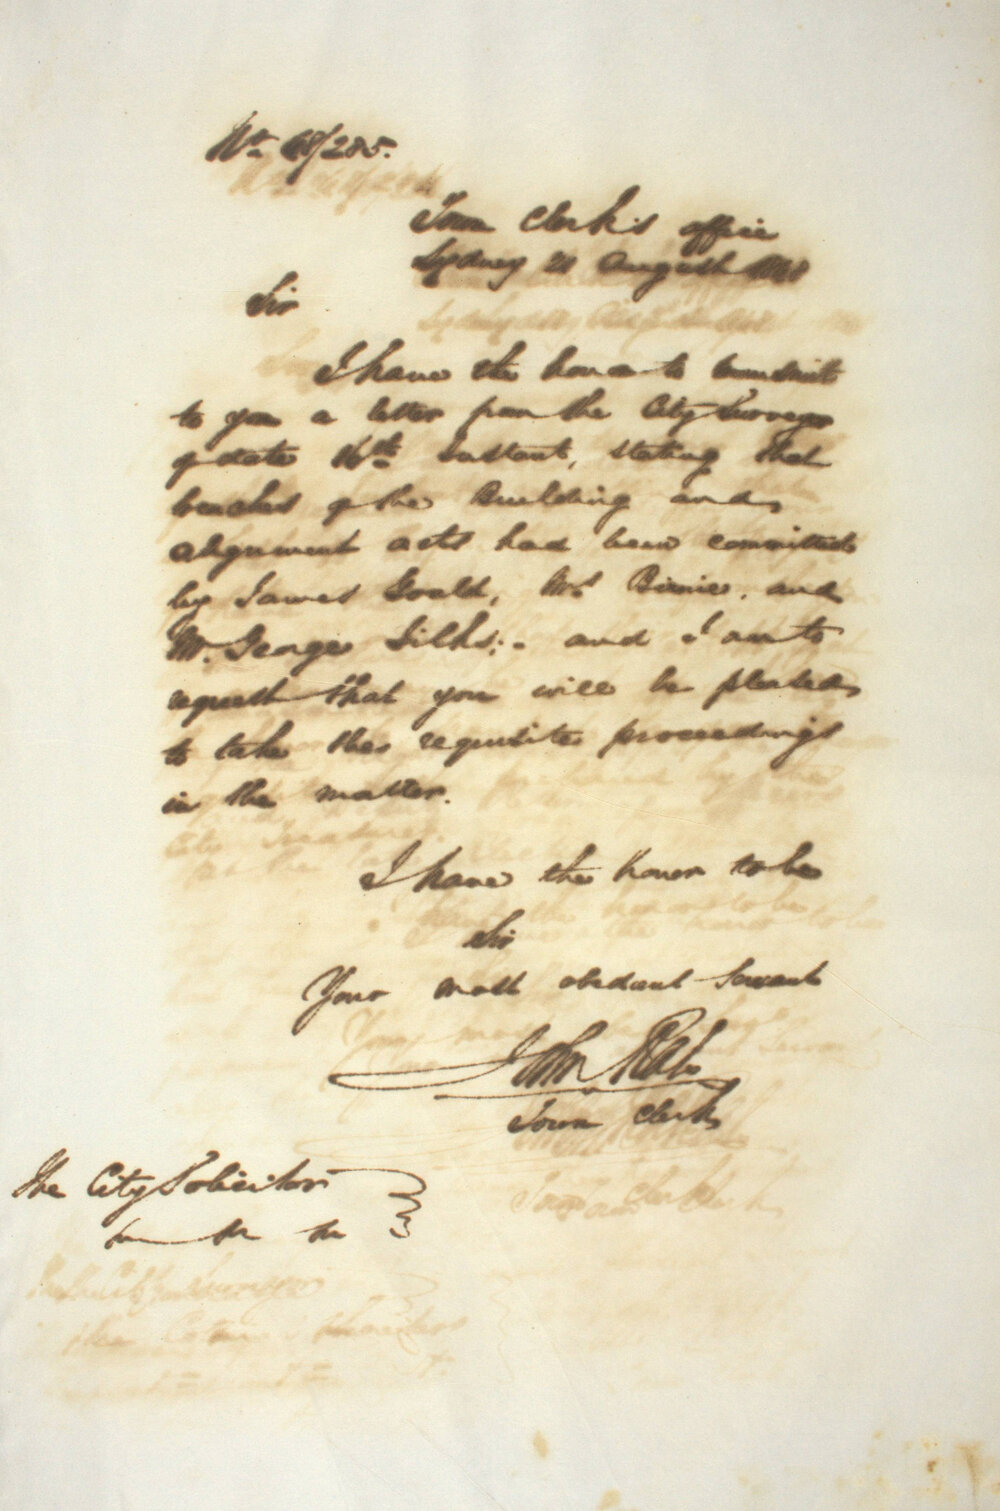 No. 68/285.
Town Clerk's office
Sydney 21 August 1868
Sir
I have the honor to transmit
to you a letter from the City Surveyor
of date 16th Instant, stating that
breaches of the Building and
alignment acts had been committed
by James Gould, Mrs Birnie, and
Mr. George Silks; and I am to
request that you will be pleased
to take the requisite proceedings
in the matter.
I have the honor to be
Sir
Your most obedient Servant
John Rae
Town Clerk
The City Solicitor